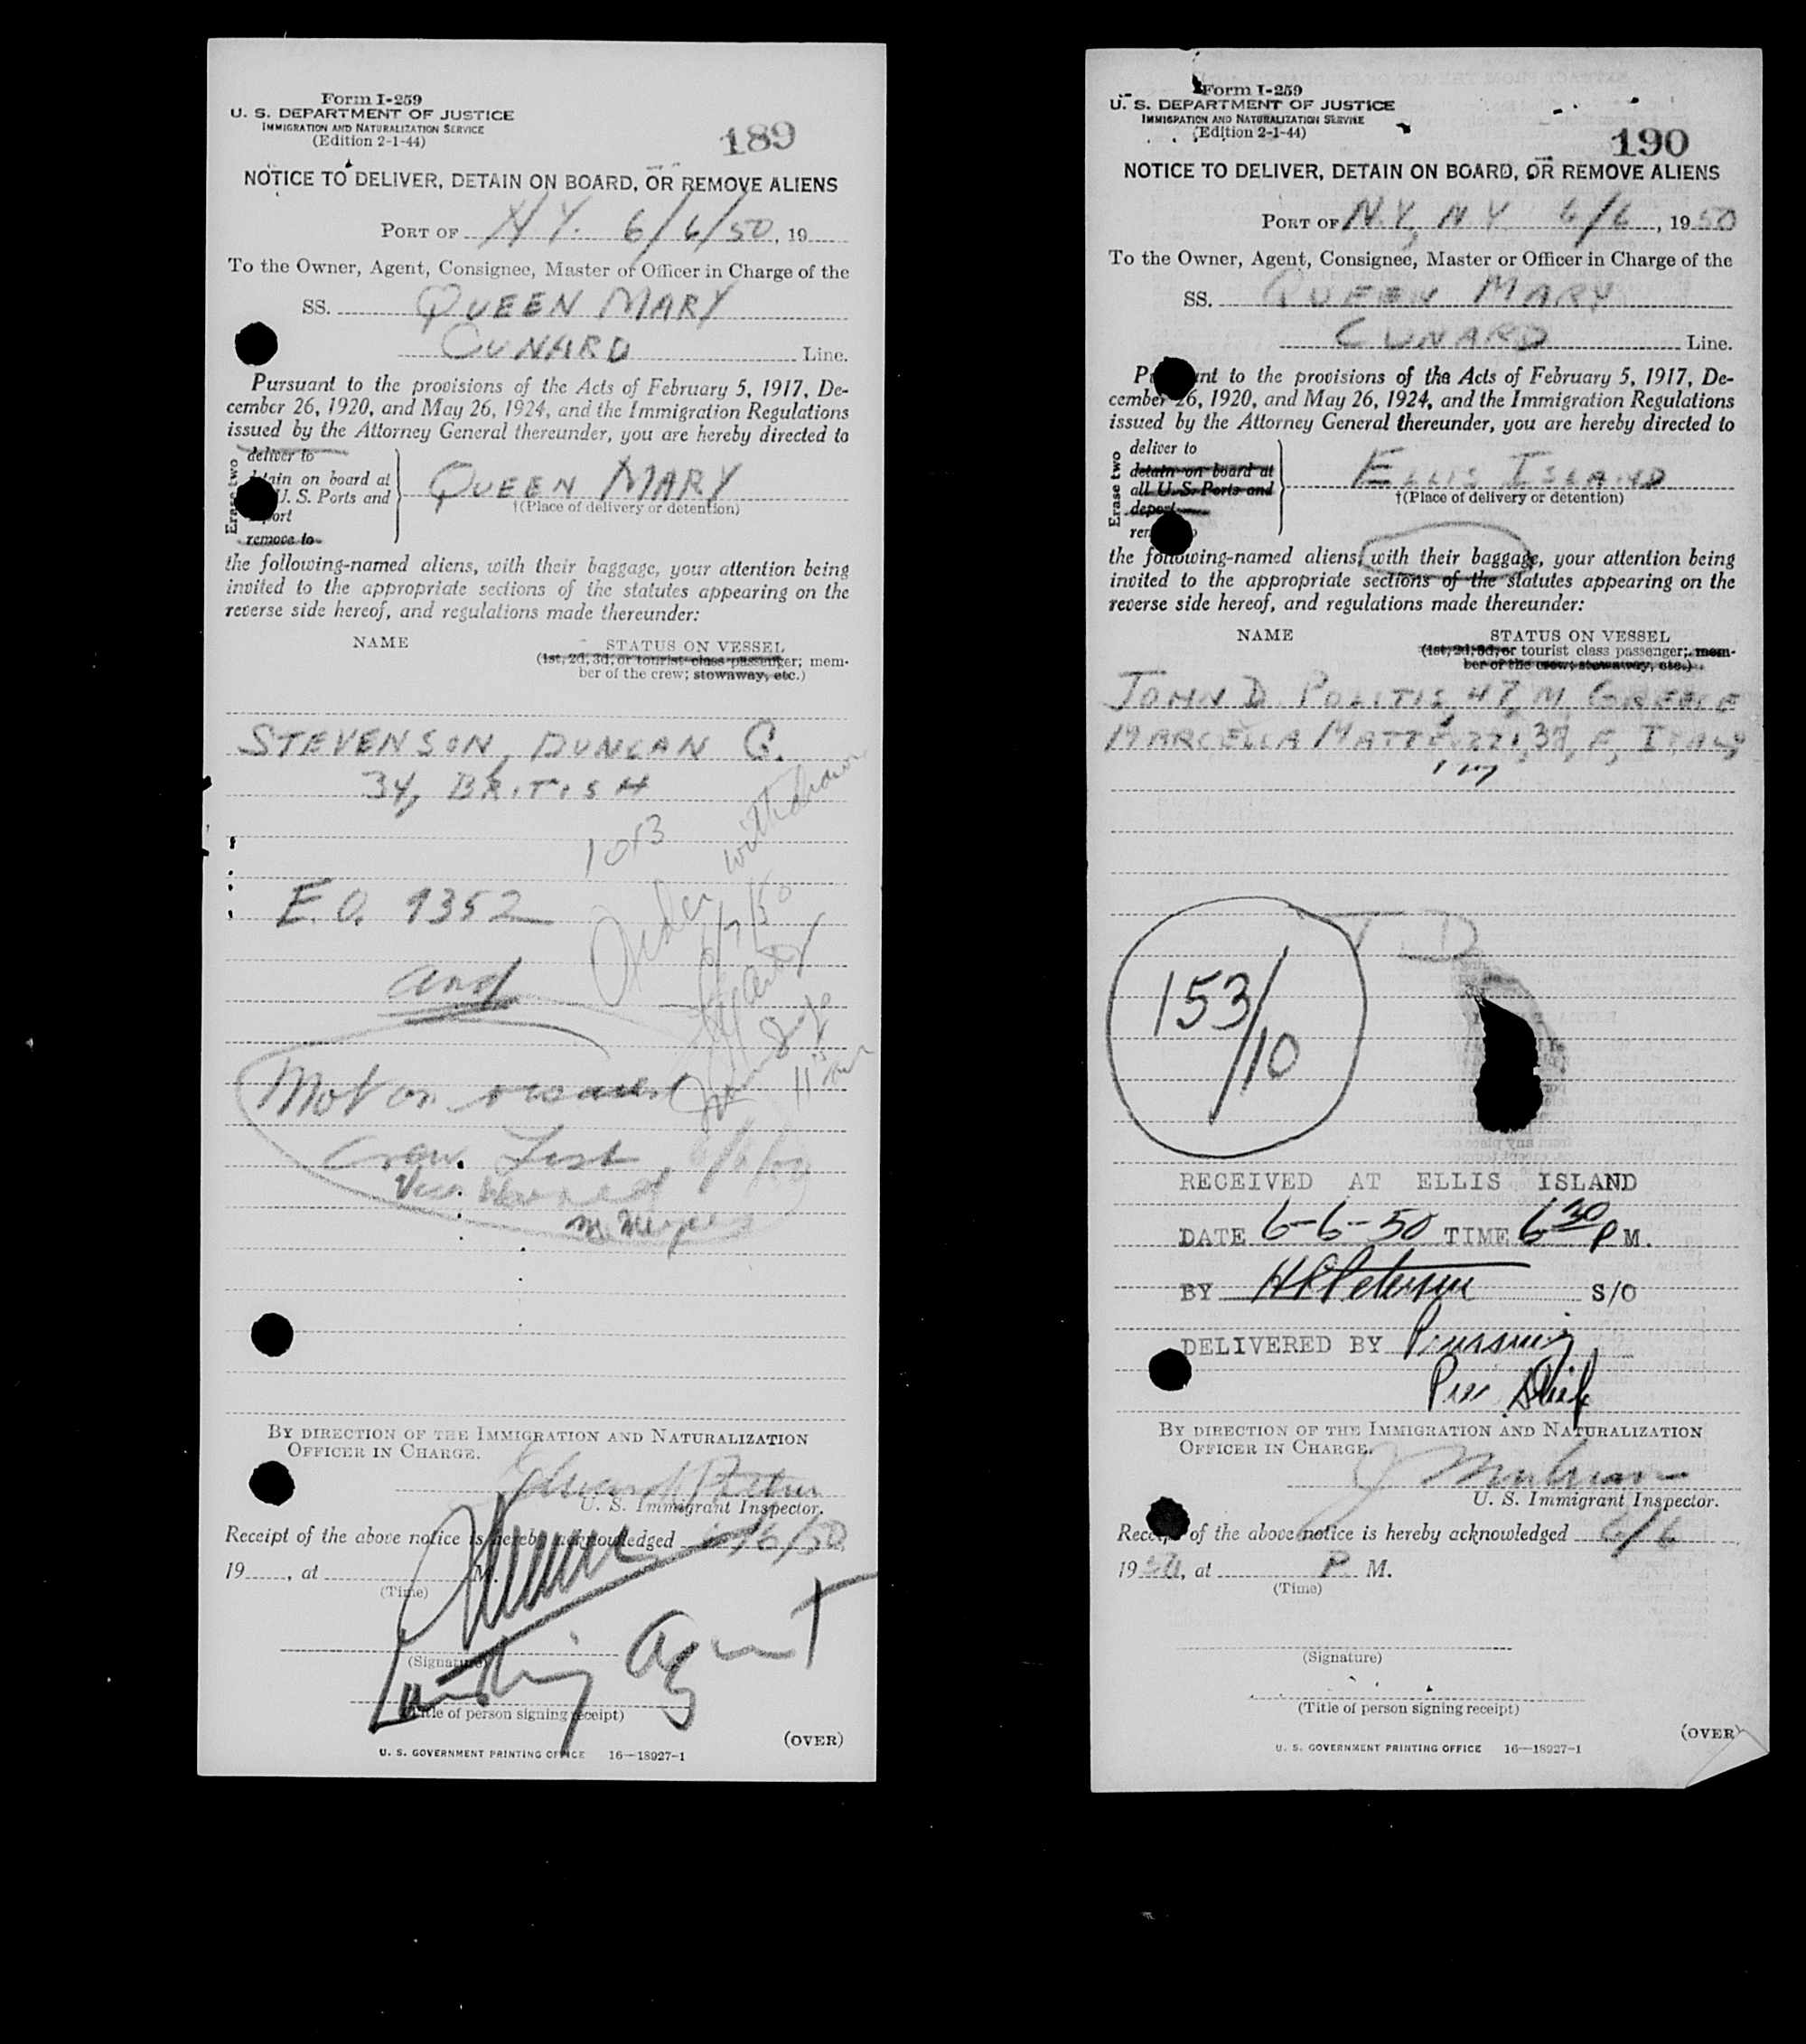 Form I-259
U. S. DEPARTMENT OF JUSTICE
IMMIGRATION AND NATURALIZATION SERVICE
(Edition 2-1-44)
189
NOTICE TO DELIVER, DETAIN ON BOARD, OR REMOVE ALIENS
PORT OF N.Y. 6/6/50, 19
To the Owner, Agent, Consignee, Master or Officer in Charge of the
SS. QUEEN MARY
CUNARD Line.
Pursuant to the provisions of the Acts of February 5, 1917, De-
cember 26, 1920, and May 26, 1924, and the Immigration Regulations
issued by the Attorney General thereunder, you are hereby directed to
Erase two
deliver to
on board at
U. S. Ports and
remove to
QUEEN MARY
†(Place of delivery or detention)
the following-named aliens, with their baggage, your attention being
invited to the appropriate sections of the statutes appearing on the
reverse side hereof, and regulations made thereunder:
NAME STATUS ON VESSEL
(1st, 2d, 3d, or tourist class passenger; mem-
ber of the crew; stowaway, etc.)
STEVENSON, DUNCAN G.
34, BRITISH
1 of 3
Order withdrawn
6/7/50
E.O. 9352
and
Not on
Crew List 6/6/50
BY DIRECTION OF THE IMMIGRATION AND NATURALIZATION
OFFICER IN CHARGE.
U. S. Immigrant Inspector.
Receipt of the above notice is hereby acknowledged 6/6/50
19 , at M.
(Time)
(Signature)
Landing Agent
(Title of person signing receipt)
(OVER)
U. S. GOVERNMENT PRINTING OFFICE 16—18927-1
Form I-259
U. S. DEPARTMENT OF JUSTICE
IMMIGRATION AND NATURALIZATION SERVICE
(Edition 2-1-44)
190
NOTICE TO DELIVER, DETAIN ON BOARD, OR REMOVE ALIENS
PORT OF N.Y, N.Y 6/6, 1950
To the Owner, Agent, Consignee, Master or Officer in Charge of the
SS. QUEEN MARY
CUNARD Line.
to the provisions of the Acts of February 5, 1917, De-
cember 26, 1920, and May 26, 1924, and the Immigration Regulations
issued by the Attorney General thereunder, you are hereby directed to
Erase two
deliver to
detain on board at
all U. S. Ports and
deport
ELLIS ISLAND
†(Place of delivery or detention)
the following-named aliens, with their baggage, your attention being
invited to the appropriate sections of the statutes appearing on the
reverse side hereof, and regulations made thereunder:
NAME STATUS ON VESSEL
(1st, 2d, 3d, or tourist class passenger; mem-
ber of the crew; stowaway, etc.)
JOHN D. POLITIS, 47, M GREECE
MARCELLA F, ITALY
T.D
153/10
RECEIVED AT ELLIS ISLAND
DATE 6-6-50 TIME 6 30 P M.
BY H Peterson S/O
DELIVERED BY
BY DIRECTION OF THE IMMIGRATION AND NATURALIZATION
OFFICER IN CHARGE.
U. S. Immigrant Inspector.
Receipt of the above notice is hereby acknowledged 6/6
1950, at P. M.
(Time)
(Signature)
(Title of person signing receipt)
(OVER)
U. S. GOVERNMENT PRINTING OFFICE 16—18927-1